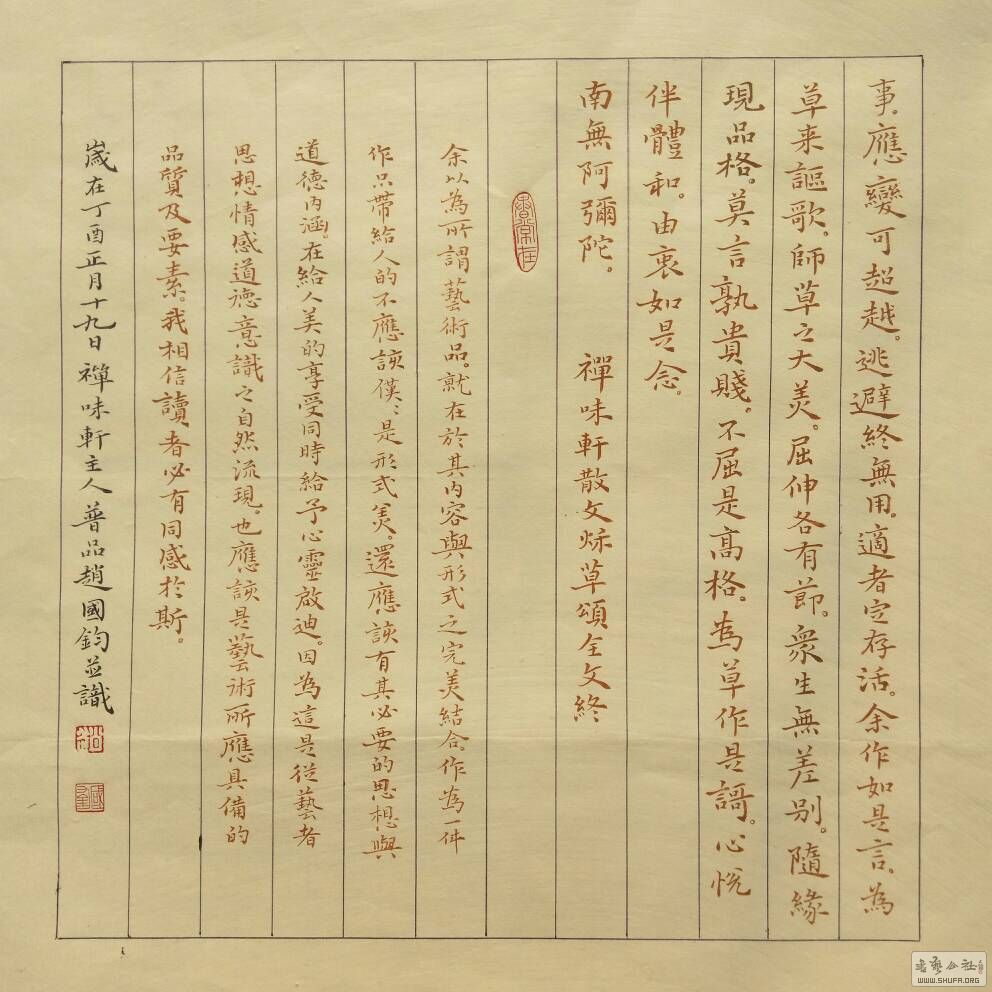 事。應變可超越。逃避終無用。適者定存活。余作如是言。為
草来謳歌。師草之大美。屈伸各有節。衆生無差别。隨緣
現品格。莫言孰貴賤。不屈是高格。為草作是謌。心悦
伴體和。由衷如是念。
南無阿彌陀。 禪味軒散文烁草頌全文終
余以為所謂藝術品。就在於其内容與形式之完美結合。作為一件
作品帶給人的不應該僅〻是形式美。還應該有其必要的思想與
道德内涵。在給人美的享受同時給予心靈啟迪。因為這是從藝者
思想情感道德意識之自然流現。也應該是藝術所應具備的
品質及要素。我相信讀者必有同感於斯。
歲在丁酉正月十九日禪味軒主人普品趙國鈞並識
書藝公社
WWW.SHUFA.ORG